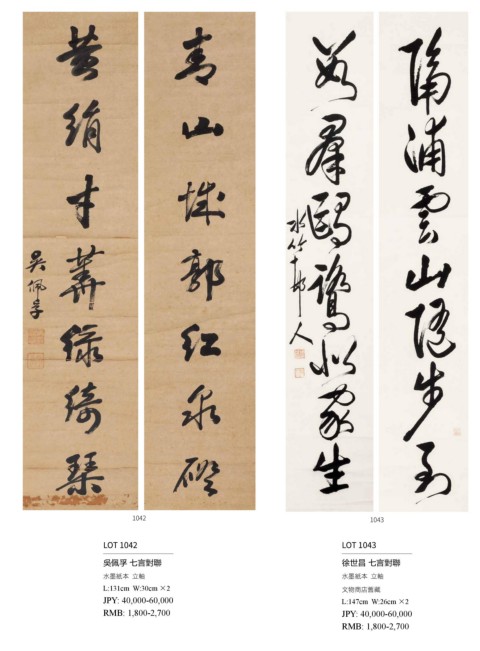 青山城郭紅泉磴
黃絹才華綠綺琴
吳佩孚
1042
隔浦雲山隨步到
數羣鷗鷺似家生
水竹邨人
1043
LOT 1042
吳佩孚 七言對聯
水墨紙本 立軸
L:131cm W:30cm ×2
JPY: 40,000-60,000
RMB: 1,800-2,700
LOT 1043
徐世昌 七言對聯
水墨紙本 立軸
文物商店舊藏
L:147cm W:26cm ×2
JPY: 40,000-60,000
RMB: 1,800-2,700